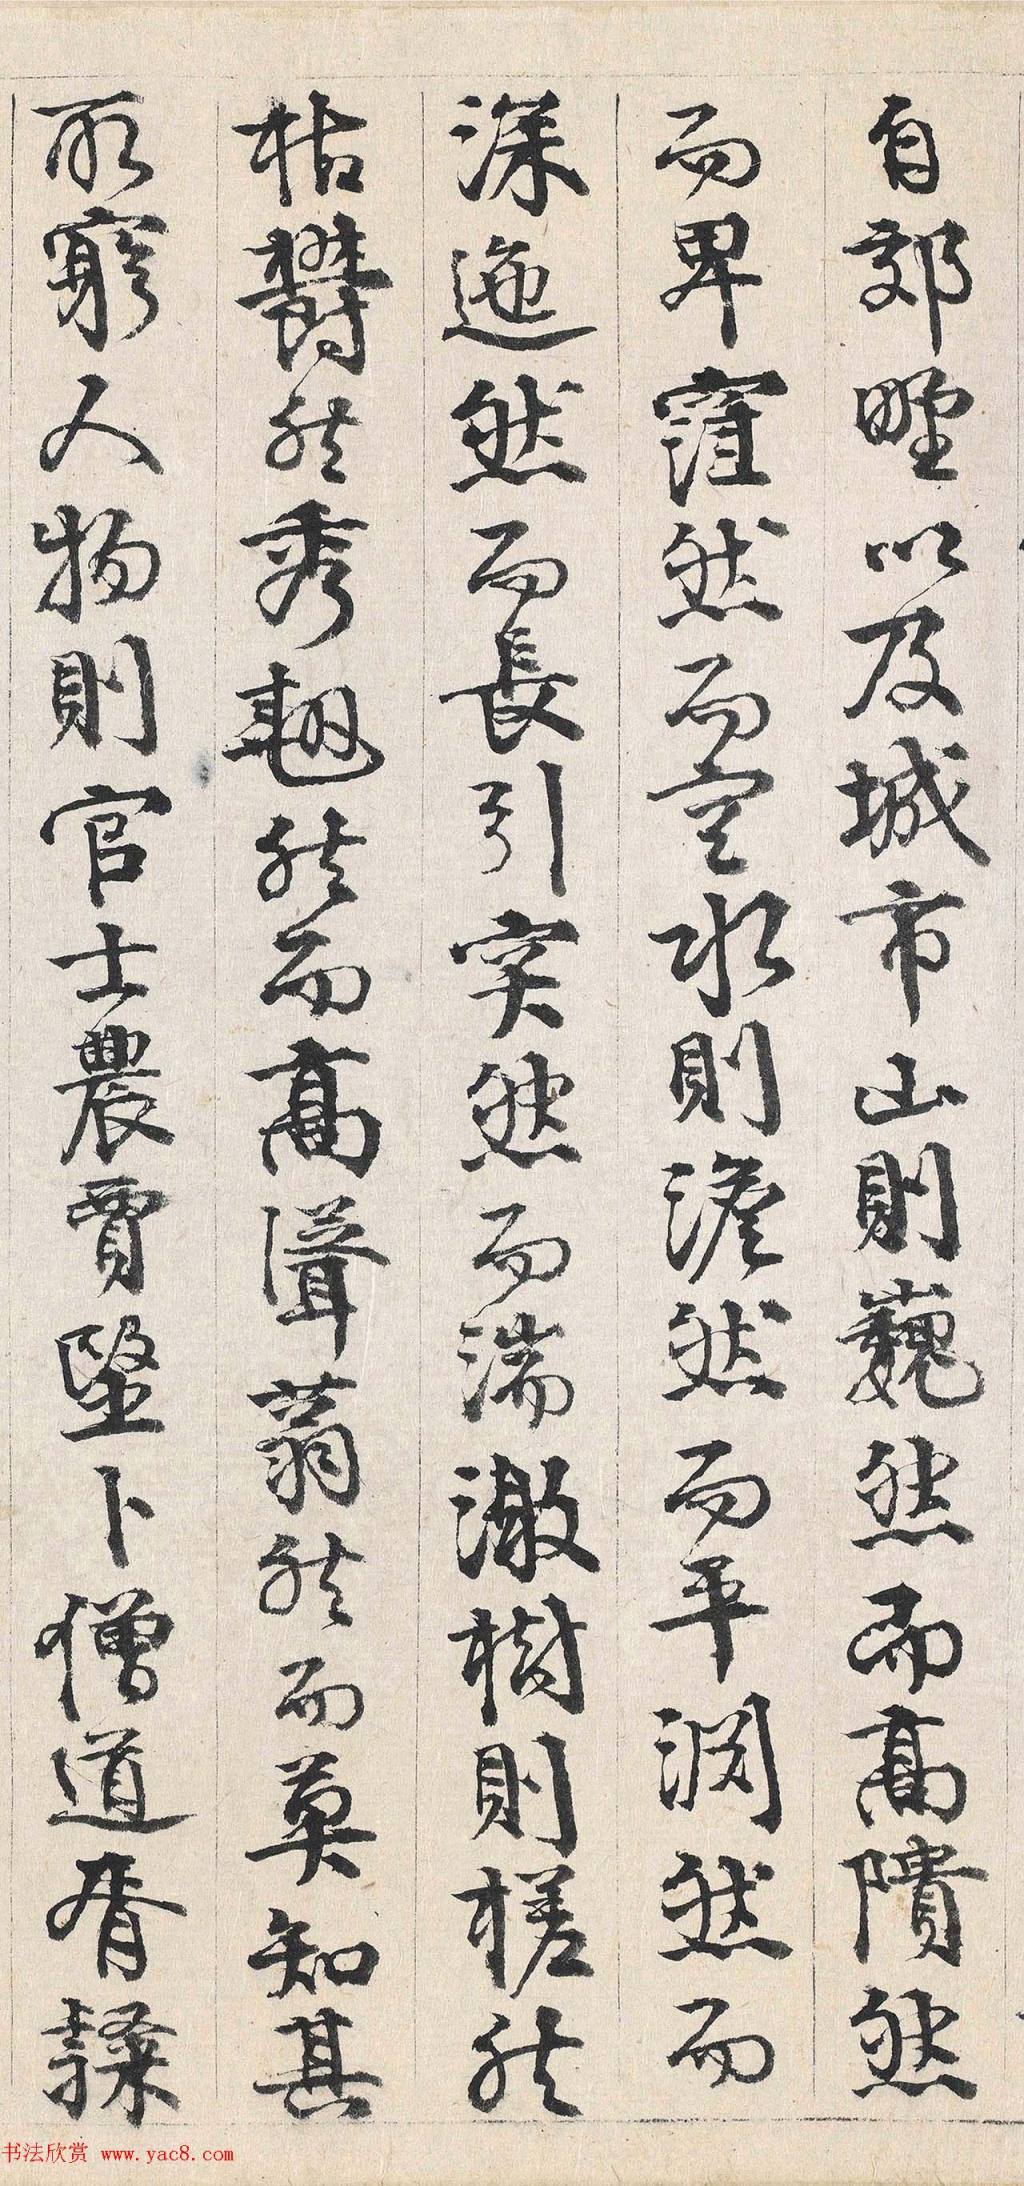 自郊野以及城市山則巍然而高隤然
而卑窪然而空水則澹然而平淵然而
深迤然而長引突然而湍激樹則槎然
枯欝然秀翹然而高聳蓊然而莫知其
所窮人物則官士農賈醫卜僧道胥隸
书法欣赏 www.yac8.com